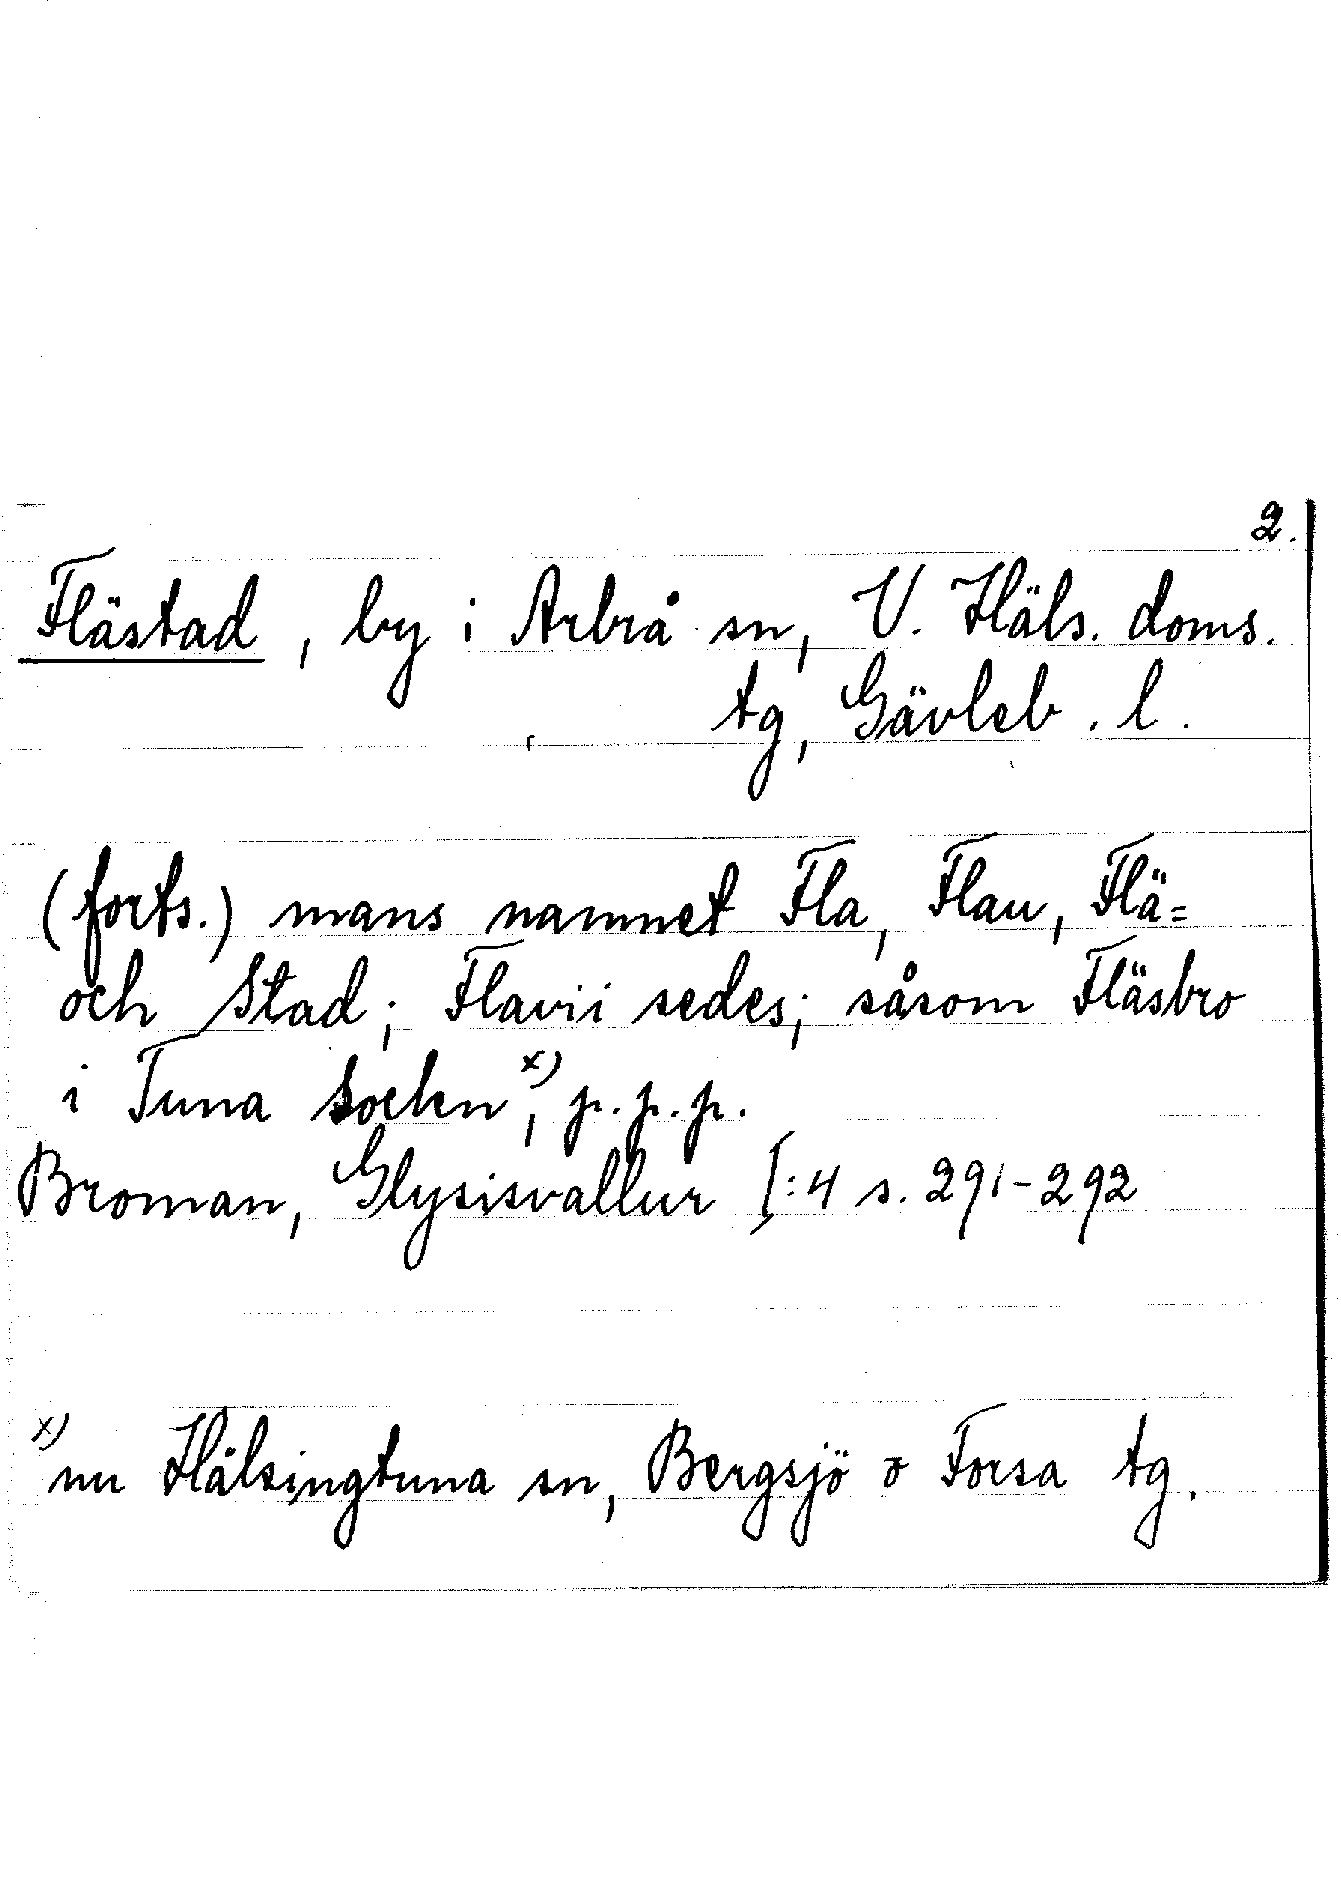 2.
Flästad, by i Arbrå sn, V. Häls. doms.
tg, Gävleb. l.
(forts.) mans namnet Fla, Flau, Flä=
och Stad; Flavii sedes; såsom Fläsbro
i Tuna Socken x), p.p.p.
Broman, Glysisvallur I:4 s. 291-292
x) nu Hälsingtuna sn, Bergsjö o Forsa tg.